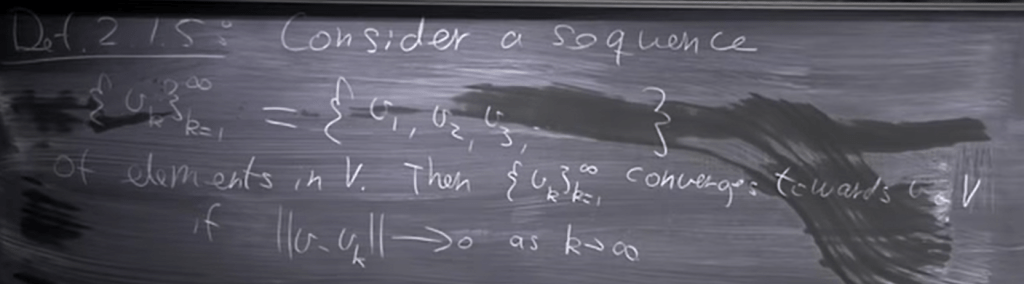 Def. 2.1.5: Consider a sequence
{v_k}_{k=1}^∞ = {v_1, v_2, v_3, }
of elements in V. Then {v_k}_{k=1}^∞ converges towards v ∈ V
if ||v - v_k|| → 0 as k → ∞